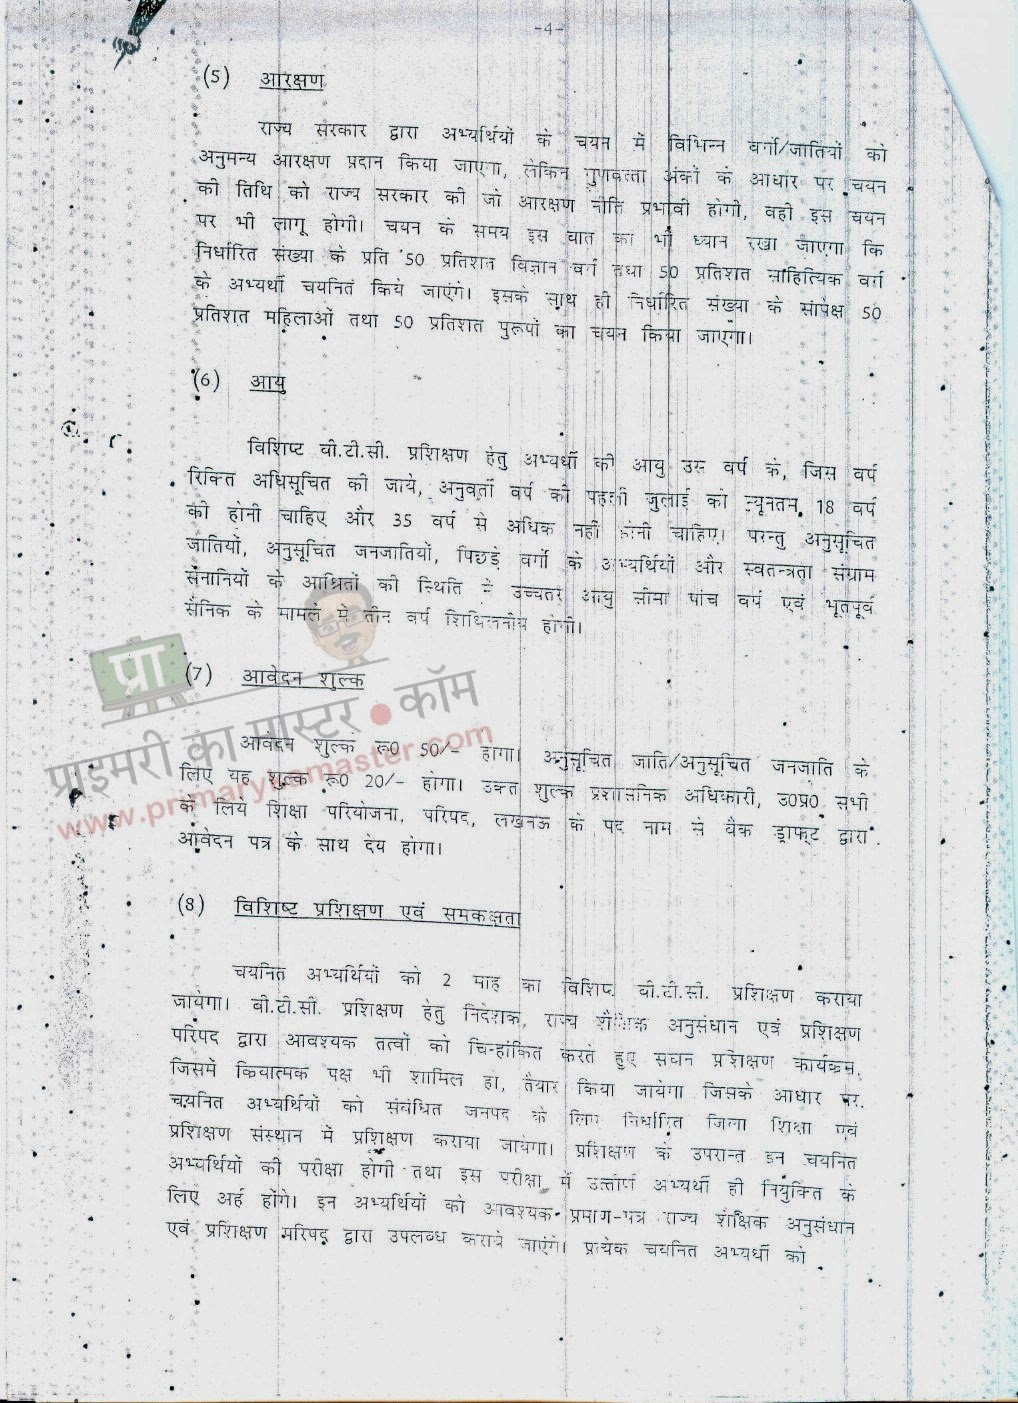 -4-
(5) आरक्षण
राज्य सरकार द्वारा अभ्यर्थियों के चयन में विभिन्न वर्गो/जातियों को
अनुमन्य आरक्षण प्रदान किया जाएगा, लेकिन गुणवत्ता अंकों के आधार पर चयन
की तिथि को राज्य सरकार की जो आरक्षण नीति प्रभावी होगी, वही इस चयन
पर भी लागू होगी। चयन के समय इस बात का भी ध्यान रखा जाएगा कि
निर्धारित संख्या के प्रति 50 प्रतिशत विज्ञान वर्ग तथा 50 प्रतिशत साहित्यिक वर्ग
के अभ्यर्थी चयनित किये जाएंगे। इसके साथ ही निर्धारित संख्या के सापेक्ष 50
प्रतिशत महिलाओं तथा 50 प्रतिशत पुरूषों का चयन किया जाएगा।
(6) आयु
विशिष्ट बी.टी.सी. प्रशिक्षण हेतु अभ्यर्थी की आयु उस वर्ष के, जिस वर्ष
रिक्ति अधिसूचित की जाये, अनुवर्ती वर्ष की पहली जुलाई को न्यूनतम 18 वर्ष
की होनी चाहिए और 35 वर्ष से अधिक नहीं होनी चाहिए। परन्तु अनुसूचित
जातियों, अनुसूचित जनजातियों, पिछड़े वर्गो के अभ्यर्थियों और स्वतन्त्रता संग्राम
सेनानियों के आश्रितों की स्थिति में उच्चतर आयु सीमा पांच वर्ष एवं भूतपूर्व
सैनिक के मामले में तीन वर्ष शिथिलनीय होगी।
(7) आवेदन शुल्क
प्रा
प्राइमरी का मास्टर.कॉम
www.primarykamaster.com
आवेदन शुल्क रू0 50/- होगा। अनुसूचित जाति/अनुसूचित जनजाति के
लिए यह शुल्क रू0 20/- होगा। उक्त शुल्क प्रशासनिक अधिकारी, उ0प्र0 सभी
के लिये शिक्षा परियोजना, परिषद, लखनऊ के पद नाम से बैंक ड्राफ्ट द्वारा
आवेदन पत्र के साथ देय होगा।
(8) विशिष्ट प्रशिक्षण एवं समकक्षता
चयनित अभ्यर्थियों को 2 माह का विशिष्ट बी.टी.सी. प्रशिक्षण कराया
जायेगा। बी.टी.सी. प्रशिक्षण हेतु निदेशक, राज्य शैक्षिक अनुसंधान एवं प्रशिक्षण
परिषद द्वारा आवश्यक तत्वों को चिन्हांकित करते हुए सघन प्रशिक्षण कार्यक्रम,
जिसमें क्रियात्मक पक्ष भी शामिल हो, तैयार किया जायेगा जिसके आधार पर
चयनित अभ्यर्थियों को संबंधित जनपद के लिए निर्धारित जिला शिक्षा एवं
प्रशिक्षण संस्थान में प्रशिक्षण कराया जायेगा। प्रशिक्षण के उपरान्त इन चयनित
अभ्यर्थियों की परीक्षा होगी तथा इस परीक्षा में उर्त्तीण अभ्यर्थी ही नियुक्ति के
लिए अर्ह होंगे। इन अभ्यर्थियों को आवश्यक प्रमाण-पत्र राज्य शैक्षिक अनुसंधान
एवं प्रशिक्षण परिषद द्वारा उपलब्ध कराये जाएंगे। प्रत्येक चयनित अभ्यर्थी को